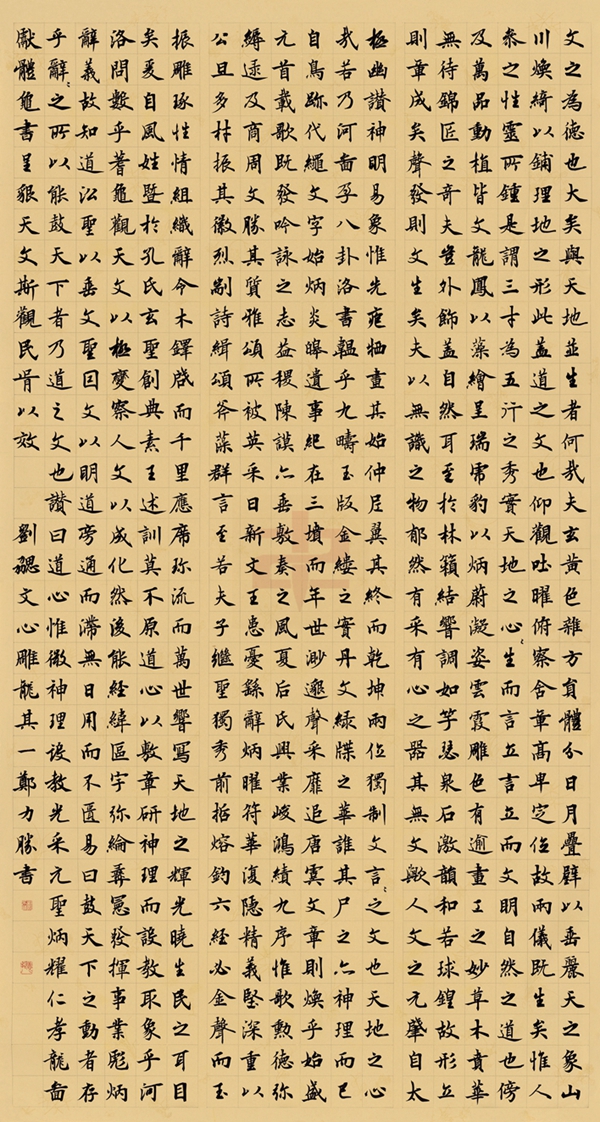 文之為德也大矣與天地並生者何哉夫玄黃色雜方員體分日月疊璧以垂麗天之象山
川煥綺以鋪理地之形此蓋道之文也仰觀吐曜俯察含章高卑定位故兩儀既生矣惟人
參之性靈所鍾是謂三才為五行之秀實天地之心〻生而言立言立而文明自然之道也傍
及萬品動植皆文龍鳳以藻繪呈瑞虎豹以炳蔚凝姿雲霞雕色有逾畫工之妙草木賁華
無待錦匠之奇夫豈外飾蓋自然耳至於林籟結響調如竽瑟泉石激韻和若球鍠故形立
則章成矣聲發則文生矣夫以無識之物郁然有采有心之器其無文歟人文之元肇自太
極幽讚神明易象惟先庖犧畫其始仲尼翼其終而乾坤兩位獨制文言〻之文也天地之心
哉若乃河圖孕八卦洛書韞乎九疇玉版金鏤之實丹文綠牒之華誰其尸之亦神理而已
自鳥跡代繩文字始炳炎皞遺事紀在三墳而年世渺邈聲采靡追唐虞文章則煥乎始盛
元首載歌既發吟詠之志益稷陳謨亦垂敷奏之風夏后氏興業峻鴻績九序惟歌勳德彌
縟逮及商周文勝其質雅頌所被英采日新文王患憂繇辭炳曜符華復隱精義堅深重以
公旦多材振其徽烈剬詩緝頌斧藻群言至若夫子繼聖獨秀前哲熔鈞六經必金聲而玉
振雕琢性情組織辭令木鐸啟而千里應席珍流而萬世響寫天地之輝光曉生民之耳目
矣爰自風姓暨於孔氏玄聖創典素王述訓莫不原道心以敷章研神理而設教取象乎河
洛問數乎蓍龜觀天文以極變察人文以成化然後能經緯區宇彌綸彝憲發揮事業彪炳
辭義故知道沿聖以垂文聖因文以明道旁通而滯無日用而不匱易曰鼓天下之動者存
乎辭〻之所以能鼓天下者乃道之文也讚曰道心惟微神理設教光采元聖炳耀仁孝龍圖
獻體龜書呈貌天文斯觀民胥以效 劉勰文心雕龍其一鄭力勝書